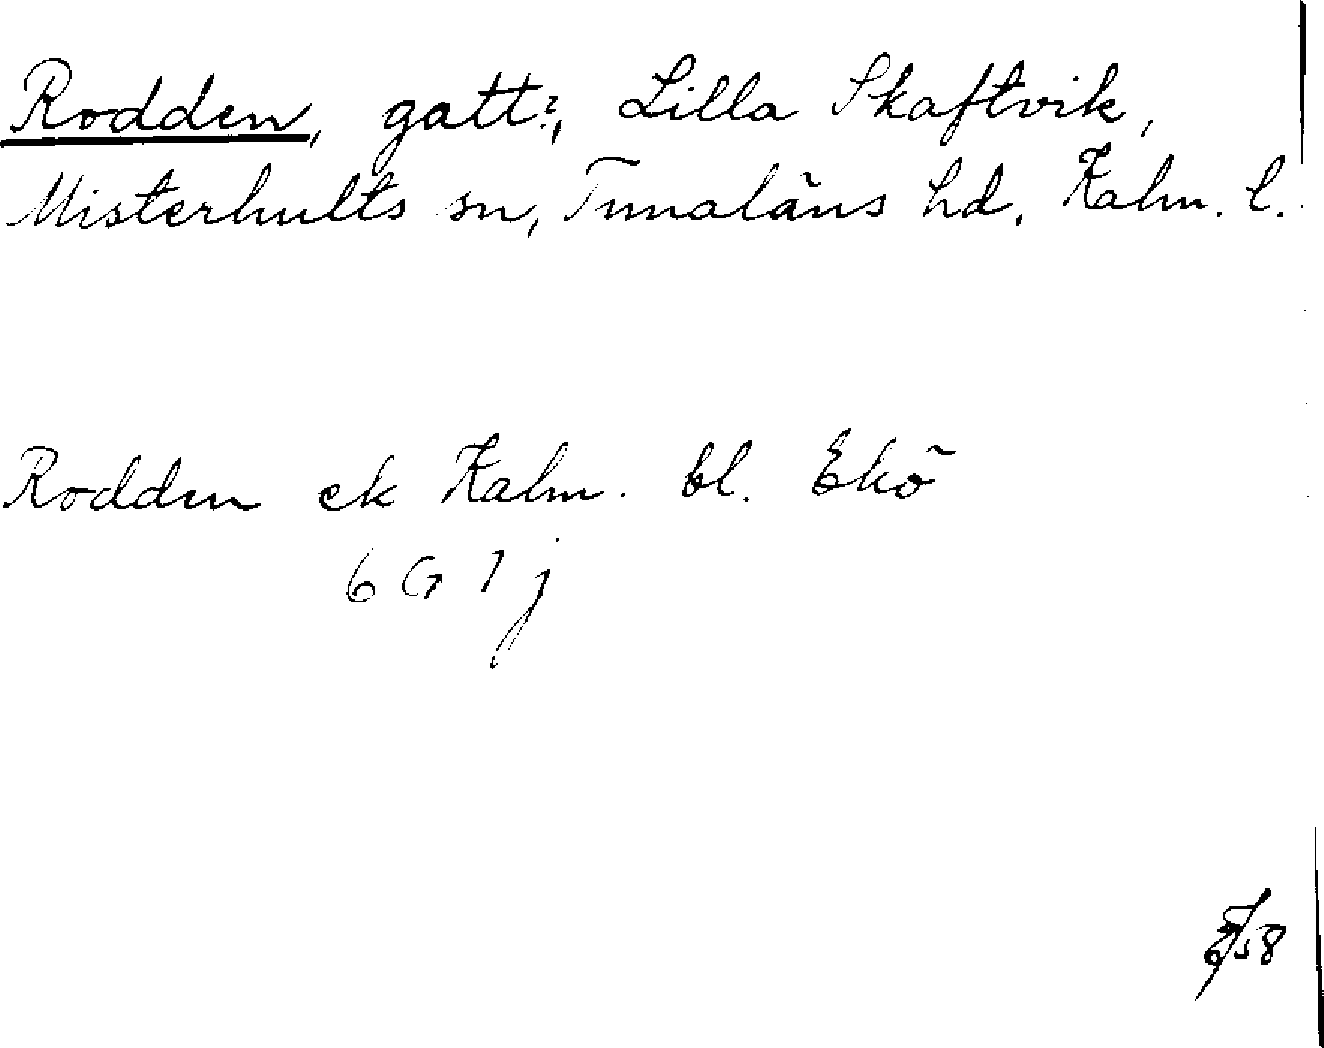 Rodden, gatt?, Lilla Skaftvik,
Misterhults sn, Tunaläns hd, Kalm. l.
Rodden ek Kalm. bl. Ekö
6 G 1 j